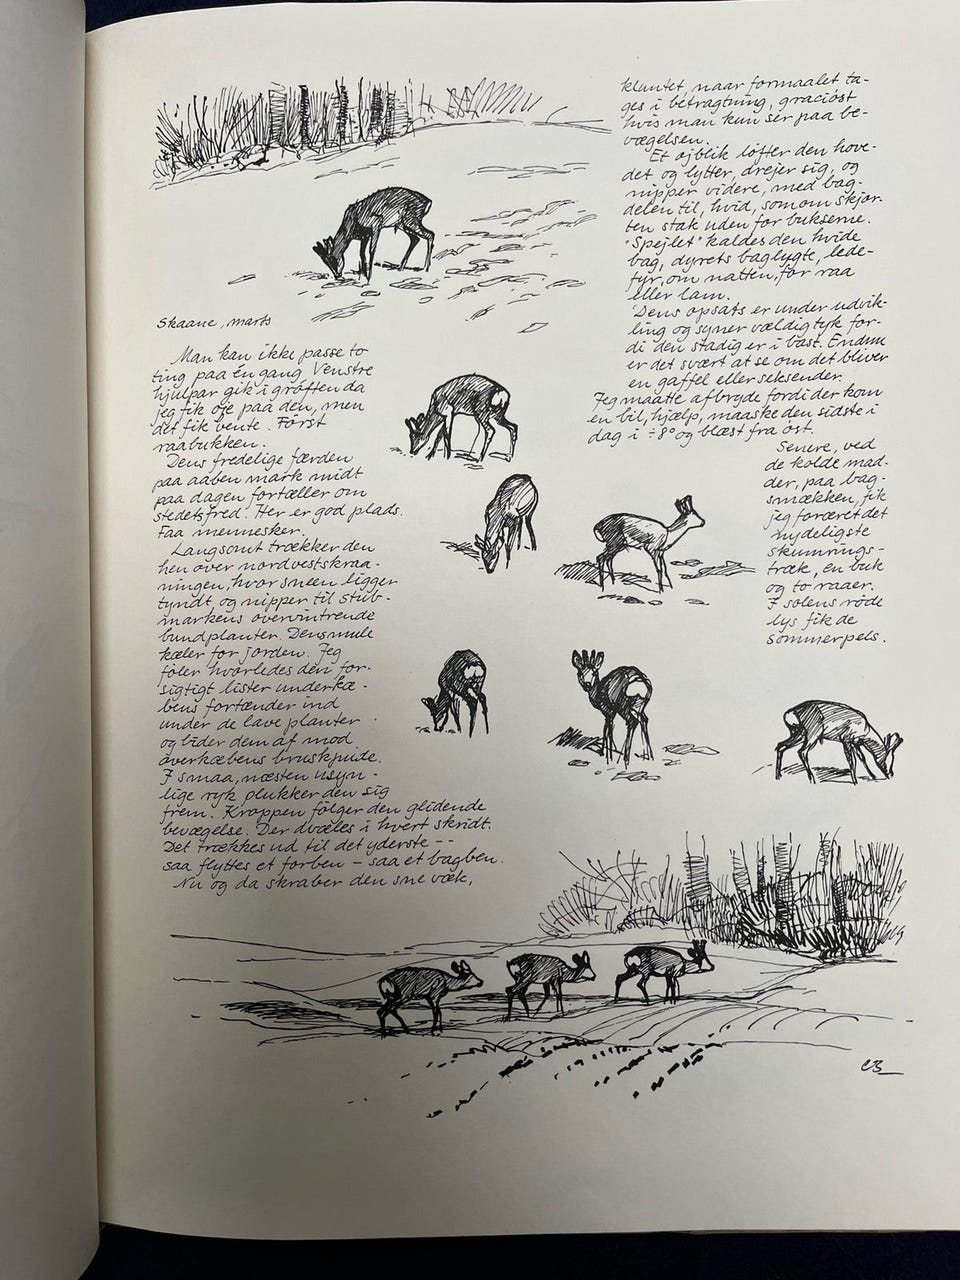 Skaane, marts
Man kan ikke passe to
ting paa én gang. Venstre
hjulpar gik i grøften da
jeg fik øje paa den, men
det fik vente. Först
raabukken.
Dens fredelige færden
paa aaben mark midt
paa dagen fortæller om
stedets fred. Her er god plads.
Faa mennesker.
Langsomt trækker den
hen over nordvestskraa-
ningen, hvor sneen ligger
tyndt og nipper til stub-
markens overvintrende
bundplanter. Dens mule
kæler for jorden. Jeg
föler hvorledes den for-
sigtigt lister underkæ-
bens fortænder ind
under de lave planter
og bider dem af mod
overkæbens bruskpude.
I smaa, næsten usyn-
lige ryk plukker den sig
frem. Kroppen fölger den glidende
bevægelse. Der dvæles i hvert skridt.
Det trækkes ud til det yderste --
saa flyttes et forben - saa et bagben.
Nu og da skraber den sne væk,
kluntet, naar formaalet ta-
ges i betragtning, graciöst
hvis man kun ser paa be-
vægelsen.
Et öjblik löfter den hove-
det og lytter, drejer sig, og
nipper videre, med bag-
delen til, hvid, som om skjor-
ten stak uden for bukserne.
"Spejlet" kaldes den hvide
bag, dyrets baglygte, lede-
fyr, om natten, for raa
eller lam.
Dens opsats er under udvik-
ling og syner vældig tyk for-
di den stadig er i bast. Endnu
er det svært at se om det bliver
en gaffel eller seksender.
Jeg maatte afbryde fordi der kom
en bil, hjælp, maaske den sidste i
dag i ÷8° og blæst fra öst.
Senere, ved
de kolde mad-
der, paa bag-
smækken, fik
jeg foræret det
nydeligste
skumrings-
træk, en buk
og to raaer.
I solens röde
lys fik de
sommerpels.
CB